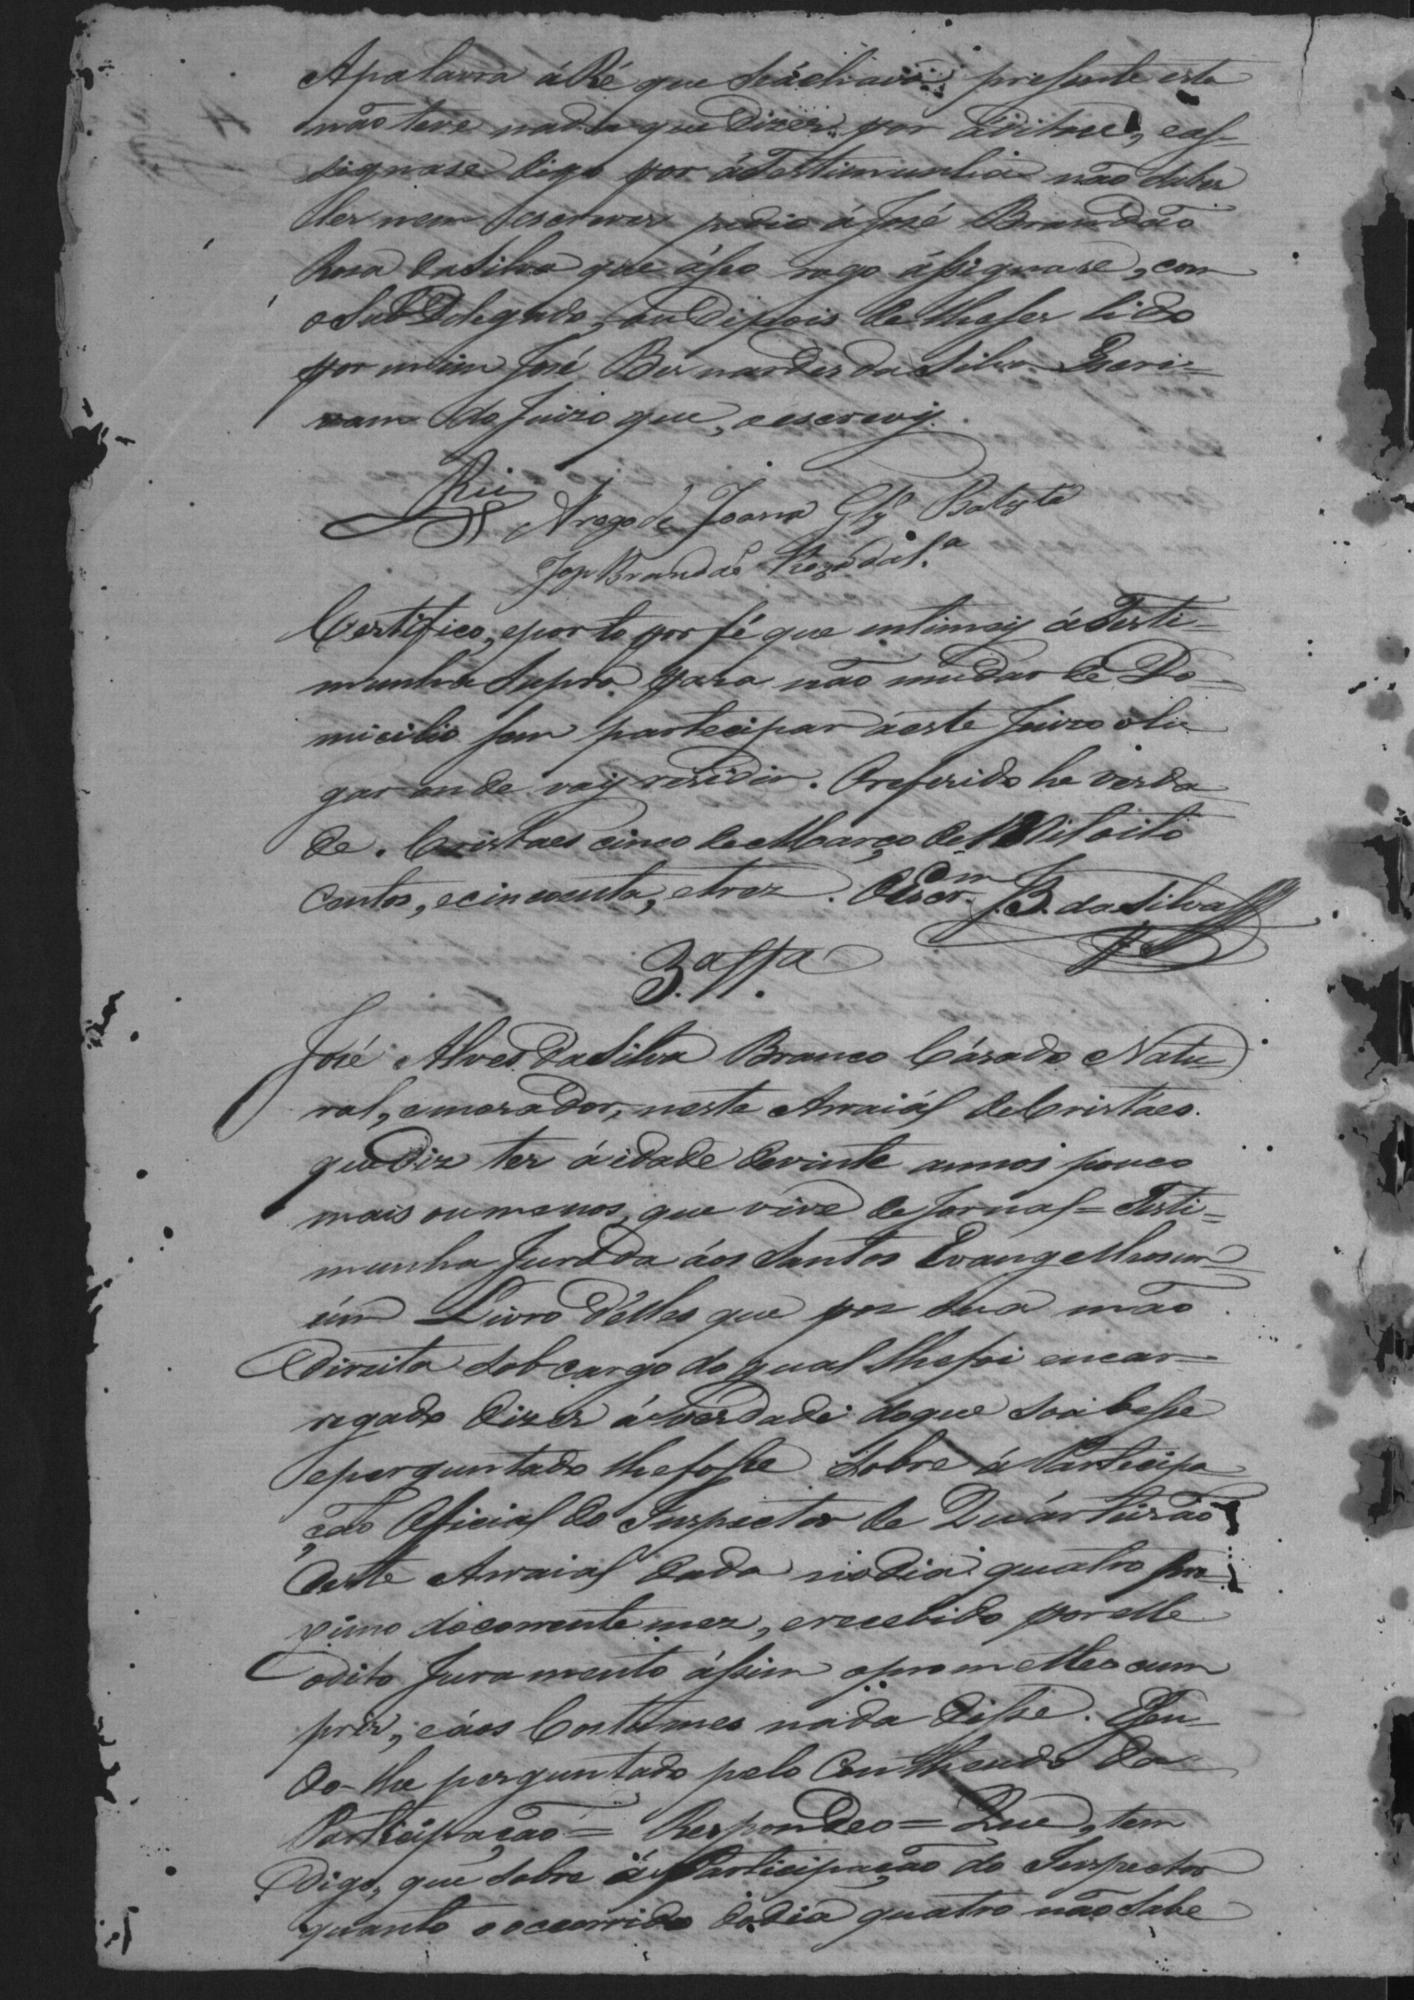 Apalavra á Ré que seáchava presente esta
não teve nada que Dizer por Dito, eas-
signase digo por áTestimunha não saber
ler nem escrever pedio á José Brandão
Roza da Silva que áseo rogo ássignase, com
o SubDelegado, Depois de lhe ser lido
por mim José Bernardes da Silva Escri-
vam do Juizo que, oescrevy.
Arogo de Joana Batista
José Brandão Roza da S.ª
Certifico, eporto por fé que intimey áTesti-
munha Supra para não mudar de Do-
micilio sem partecipar áeste Juizo olu-
gar onde vay rezidir. Oreferido he verda
de. Cristaes cinco de Março de Mil oito
centos, ecincoenta, etrez. OEscr.m J. B. da Silva
3.ª Tt.ª
José Alves da Silva Branco Cázado Natu-
ral, emorador, neste Arraiál de Cristáes.
que Diz ter á idade de vinte annos pouco
mais ou menos, que vive de Jornal = Testi-
munha Jurada áos Santos Evangelhos em
úm Livro Délles que poz sua mão
Direita sob cargo do qual lhe foi encar-
regado Dizer á verdade doque soubesse
eperguntado lhe fosse sobre á Participa
ção Oficial do Inspector de Quárteirão
deste Arraial dada no dia quatro pro-
ximo docorrente mez, erecebido por elle
odito Juramento ássim oprometteo cum
prir, eáos Costumes nada Disse. Esen-
do-lhe perguntado pelo Contheudo da
Participação = Respondeo = Que, tem
Digo, que sobre á Participação do Inspector
quanto oocorrido dodia quatro não sabe